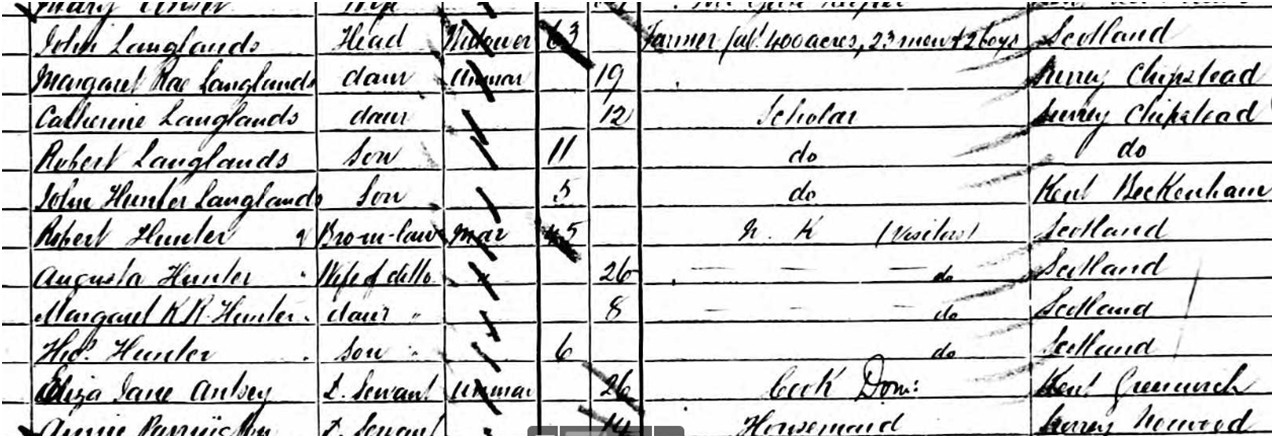 Mary Wife
John Langlands Head Widower 63 Farmer 400 acres, 23 men & 2 boys Scotland
Margaret Rae Langlands daur Unmar 19 Surrey Chipstead
Catherine Langlands daur 12 Scholar Surrey Chipstead
Robert Langlands Son 11 do do
John Hunter Langlands Son 5 do Kent Beckenham
Robert Hunter Bro-in-law Mar 45 N. K (Visitors) Scotland
Augusta Hunter Wife of ditto 26 — — — do Scotland
Margaret K R Hunter daur " 8 — — — do Scotland
Hunter Son " 6 do Scotland
Eliza Jane Antsey F. Servant Unmar 26 Cook Dom: Kent Greenwich
Annie F. Servant 14 Housemaid Surrey Norwood